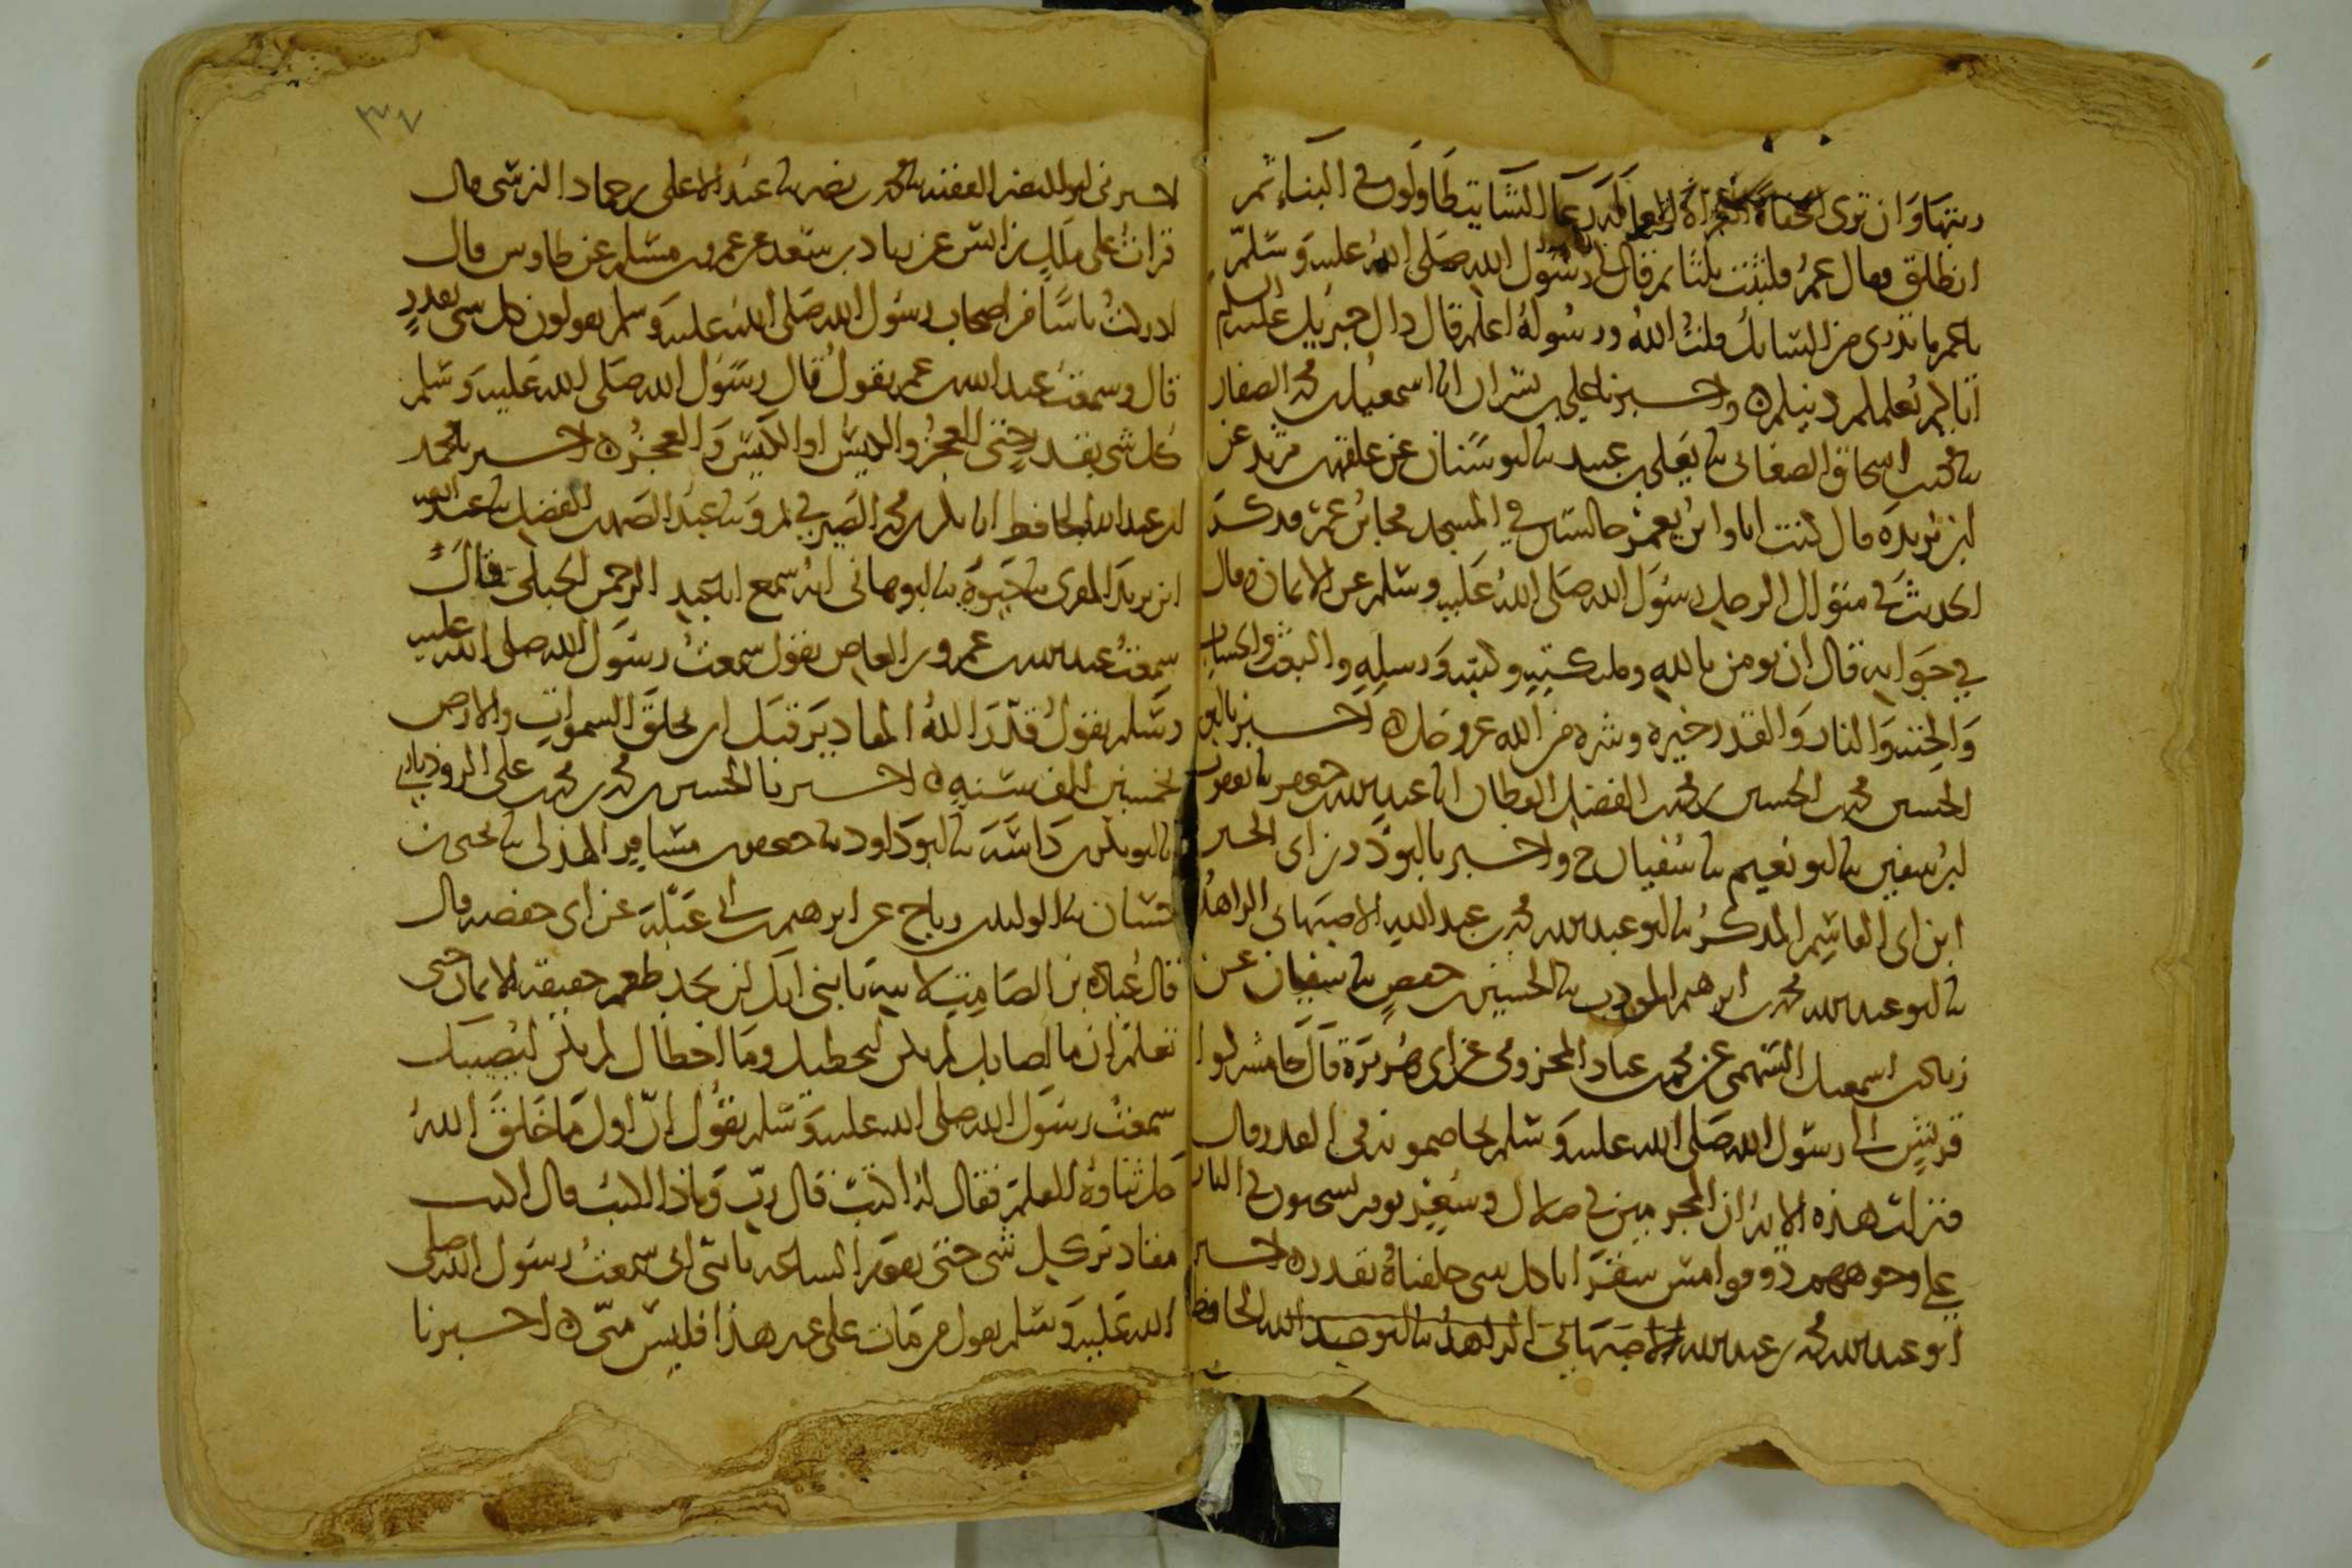 ربتها وان ترى الحفاة العراة العالة رعا الشا يتطاولون في البناء ثم
انطلق فقال عمر فلبثت ثلثا ثم قال لي رسول الله صلى الله عليه وسلم
يا عمر ما تدري من السائل قلت الله ورسوله اعلم قال ذاك جبريل عليه السلم
اتاكم يعلمكم دينكم ه واخبرنا علي بن بشران انا اسمعيل بن محمد الصفار
نا محمد بن اسحاق الصغاني نا يعلى بن عبيد نا ابو سنان عن علقمة بن مرثد عن
ابن بريدة قال كنت انا وابن يعمر جالسين في المسجد فجا ابن عمر فذكر
الحديث في سؤال الرجل رسول الله صلى الله عليه وسلم عن الايمان وقال
في جوابه قال ان تومن بالله وملائكته وكتبه ورسله والبعث والحساب
والجنة والنار والقدر خيره وشره من الله عز وجل ه اخبرنا ابو
الحسين محمد بن الحسين بن محمد بن الفضل القطان انا عبد الله بن جعفر نا يعقوب
بن سفين نا ابو نعيم نا سفيان ح واخبرنا ابو ذر بن ابي الحسين
ابن ابي القاسم المذكر نا ابو عبد الله محمد بن عبد الله الاصبهاني الزاهد
نا ابو عبد الله محمد بن ابرهيم المودب نا الحسين بن حفص نا سفيان عن
زياد بن اسمعيل السهمي عن محمد بن عباد المخزومي عن ابي هريرة قال جا مشركوا
قريش الى رسول الله صلى الله عليه وسلم يخاصمونه في القدر قال
فنزلت هذه الاية ان المجرمين في ضلال وسعر يوم يسحبون في النار
على وجوههم ذوقوا مس سقر انا كل شي خلقناه بقدر ه اخبرنا
ابو عبد الله محمد بن عبد الله الاصبهاني الزاهد نا ابو عبد الله الحافظ
٣٧
اخبرني ابو النضر الفقيه نا محمد بن نصر نا عبد الاعلى بن حماد النرسي قال
قرات على ملك بن انس عن زياد بن سعد عن عمرو بن مسلم عن طاوس قال
ادركت ناسا من اصحاب رسول الله صلى الله عليه وسلم يقولون كل شي بقدر
قال وسمعت عبد الله بن عمر يقول قال رسول الله صلى الله عليه وسلم
كل شي بقدر حتى العجز والكيس او الكيس والعجز ه اخبرنا محمد
بن عبد الله الحافظ انا بكر بن محمد الصيرفي بمرو نا عبد الصمد بن الفضل نا عبد الله
بن يزيد المقري نا حيوة نا ابو هاني انه سمع ابا عبد الرحمن الحبلي قال
سمعت عبد الله بن عمرو بن العاص يقول سمعت رسول الله صلى الله عليه
وسلم يقول قدر الله المقادير قبل ان يخلق السموات والارض
بخمسين الف سنة ه اخبرنا الحسين بن محمد بن محمد بن علي الروذباري
انا ابو بكر بن داسة نا ابو داود نا جعفر بن مسافر الهذلي نا يحيى بن
حسان نا الوليد بن رباح عن ابرهيم بن ابي عبلة عن ابي حفصة قال
قال عبادة بن الصامت لابنه يا بني انك لن تجد طعم حقيقة الايمان حتى
تعلم ان ما اصابك لم يكن ليخطيك وما اخطاك لم يكن ليصيبك
سمعت رسول الله صلى الله عليه وسلم يقول ان اول ما خلق الله
جل ثناوه القلم فقال له اكتب قال رب وماذا اكتب قال اكتب
مقادير كل شي حتى تقوم الساعة يا بني اني سمعت رسول الله صلى
الله عليه وسلم يقول من مات على غير هذا فليس مني ه اخبرنا